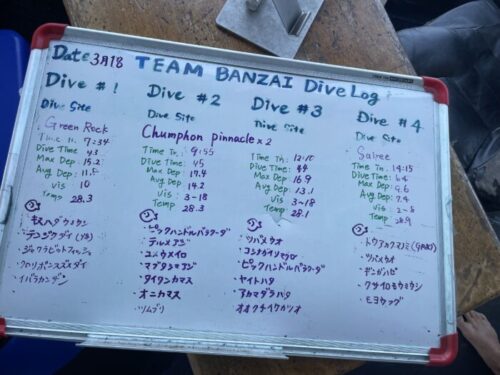 Date 3月18 TEAM BANZAI Dive Log
Dive #1
Dive Site
Green Rock
Time In 7:34
Dive Time 43
Max Dep: 15.2
Avg Dep:
Vis 10
Temp 28.3
テンジクダイ
ジャックラビットフィッシュ
イバラカンザシ
Dive #2
Dive Site
Chumphon pinnacle x 2
Time In, 9:55
Dive Time 45
Max Dep 17.4
Avg Dep 14.2
Vis 3-18
Temp 28.3
・ピックハンドルバラクーダ
・テルメアジ
・ユメウメイロ
・マブタシマアジ
・タイワンカマス
・オニカマス
・ツムブリ
Dive #3
Dive Site
Time In: 12:10
Dive Time: 44
Max Dep 16.9
Avg Dep 13.1
Vis 3-18
Temp 28.1
・ツバメウオ
・コガネアジ
・ピックハンドルバラクーダ
・ヤイトハタ
・アカマダラハタ
Dive #4
Dive Site
Sairee
Time In: 14:15
Dive Time:
Max Dep
Avg Dep
Vis
Temp 28.9
・トウアカクマノミ
・ツバメウオ
・ギンガハゼ
・クサイロモウミウシ